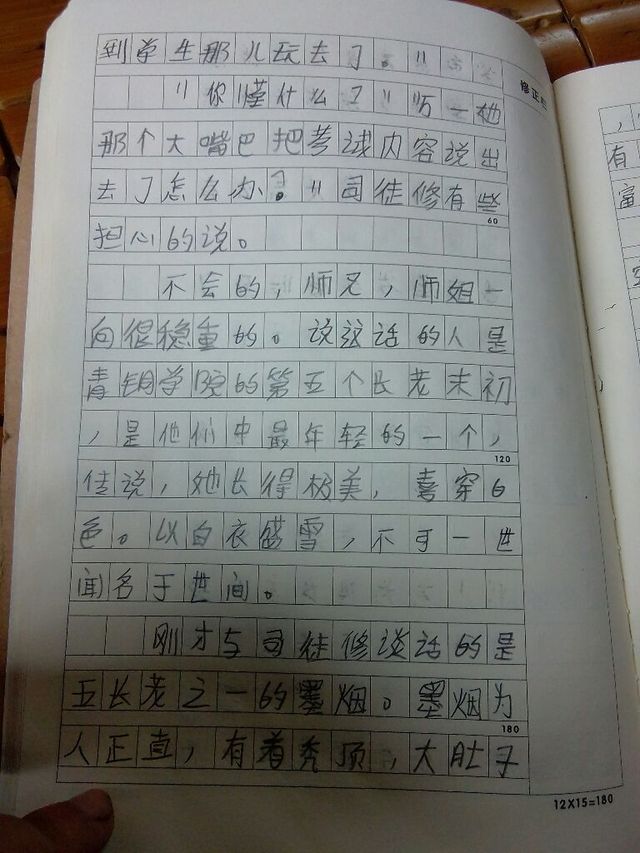 到学生那儿玩去了。"
修正
"你懂什么了"万一她
那个大嘴巴把考试内容说出
去了怎么办?"司徒修有些
60
担心的说。
不会的,师兄,师姐一
向很稳重的。说这话的人是
青铜学院的第五个长老末初
,是他们中最年轻的一个,
120
传说,她长得极美,喜穿白
色。以白衣盛雪,不可一世
闻名于世间。
刚才与司徒修谈话的是
五长老之一的墨烟。墨烟为
180
人正直,有着秃顶,大肚子
12X15=180
,
有
富